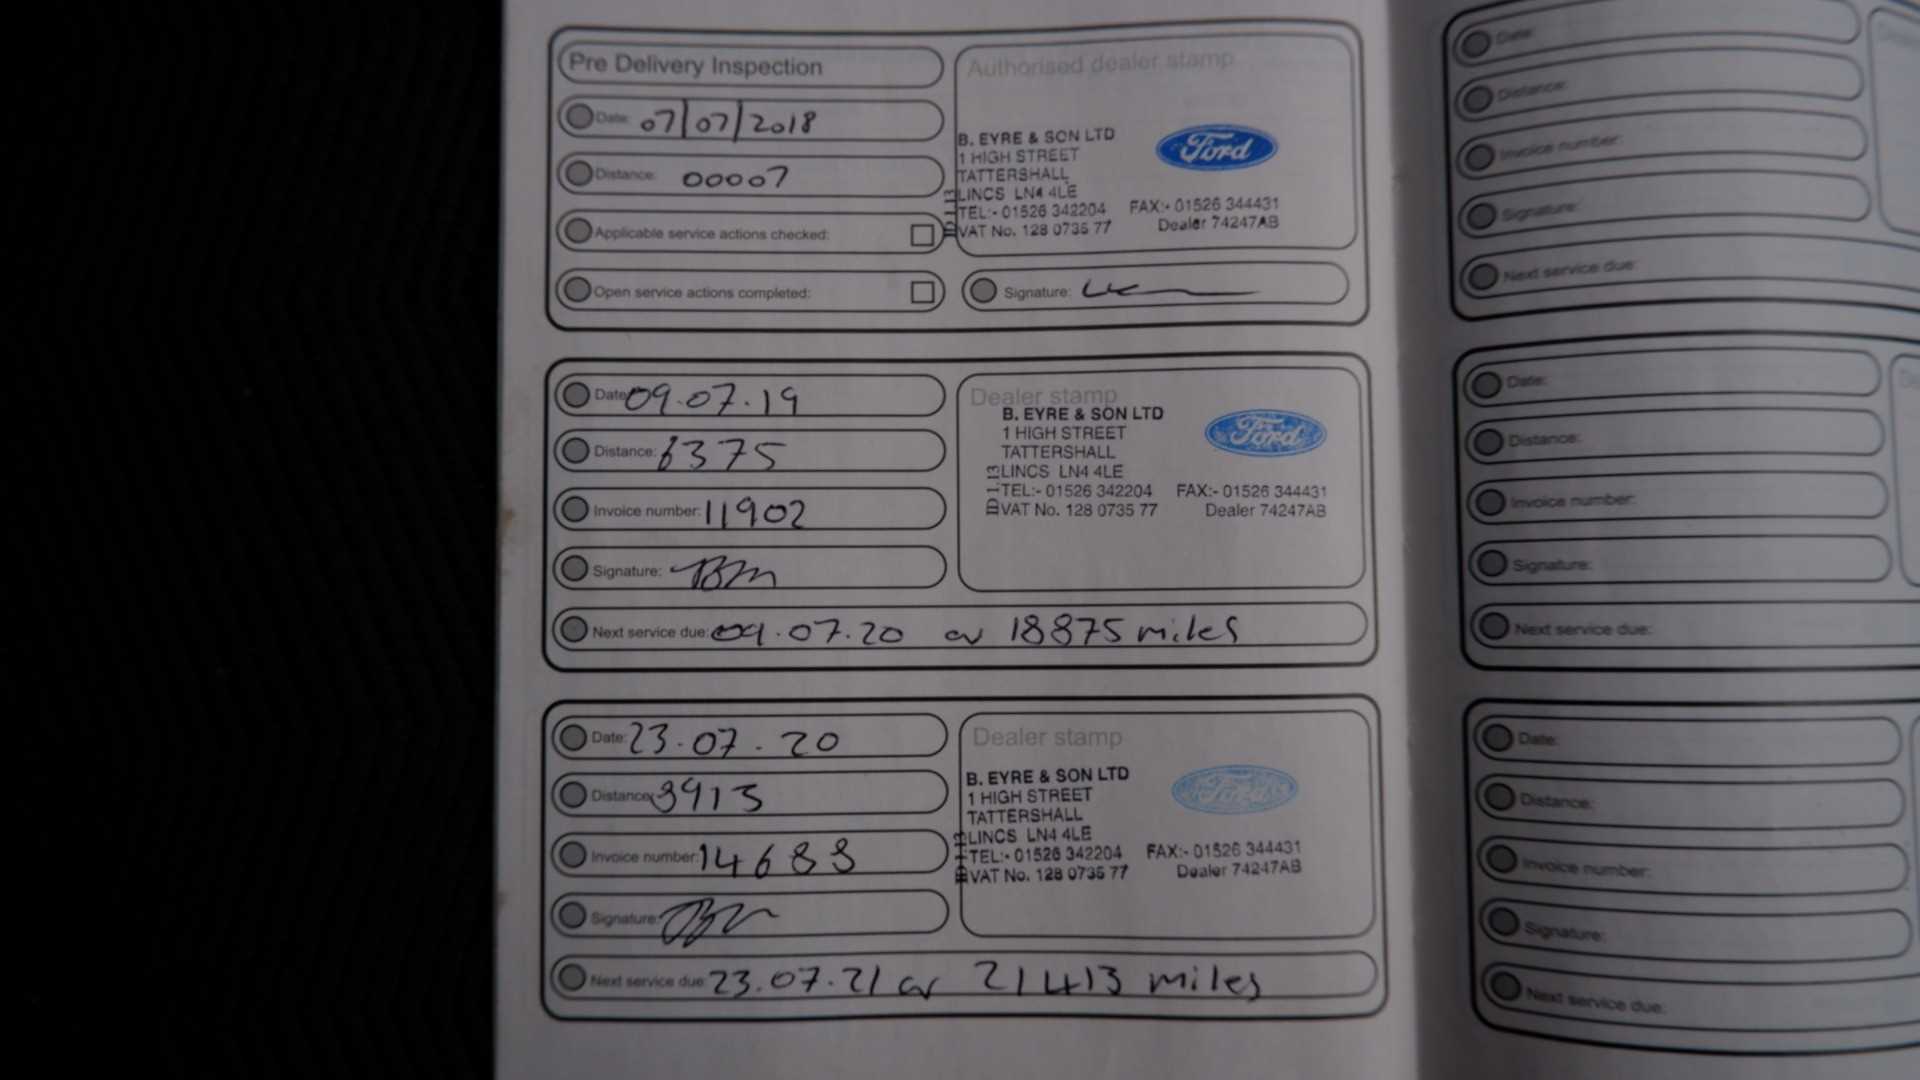 Pre Delivery Inspection
Date: 07/07/2018
Distance: 00007
Applicable service actions checked:
Open service actions completed:
Authorised dealer stamp
B. EYRE & SON LTD
1 HIGH STREET
TATTERSHALL
LINCS LN4 4LE
TEL:- 01526 342204 FAX:- 01526 344431
VAT No. 128 0735 77 Dealer 74247AB
ID 1.13
Ford
Signature:
Date: 09.07.19
Distance: 6375
Invoice number: 11902
Signature:
Next service due: 09.07.20 or 18875 miles
Dealer stamp
B. EYRE & SON LTD
1 HIGH STREET
TATTERSHALL
LINCS LN4 4LE
TEL:- 01526 342204 FAX:- 01526 344431
VAT No. 128 0735 77 Dealer 74247AB
ID 1.13
Ford
Date: 23.07.20
Distance: 8913
Invoice number: 14688
Signature:
Next service due: 23.07.21 or 21413 miles
Dealer stamp
B. EYRE & SON LTD
1 HIGH STREET
TATTERSHALL
LINCS LN4 4LE
TEL:- 01526 342204 FAX:- 01526 344431
VAT No. 128 0735 77 Dealer 74247AB
Date:
Distance:
Invoice number:
Signature:
Next service due:
Date:
Distance:
Invoice number:
Signature:
Next service due:
Date:
Distance:
Invoice number:
Signature:
Next service due: